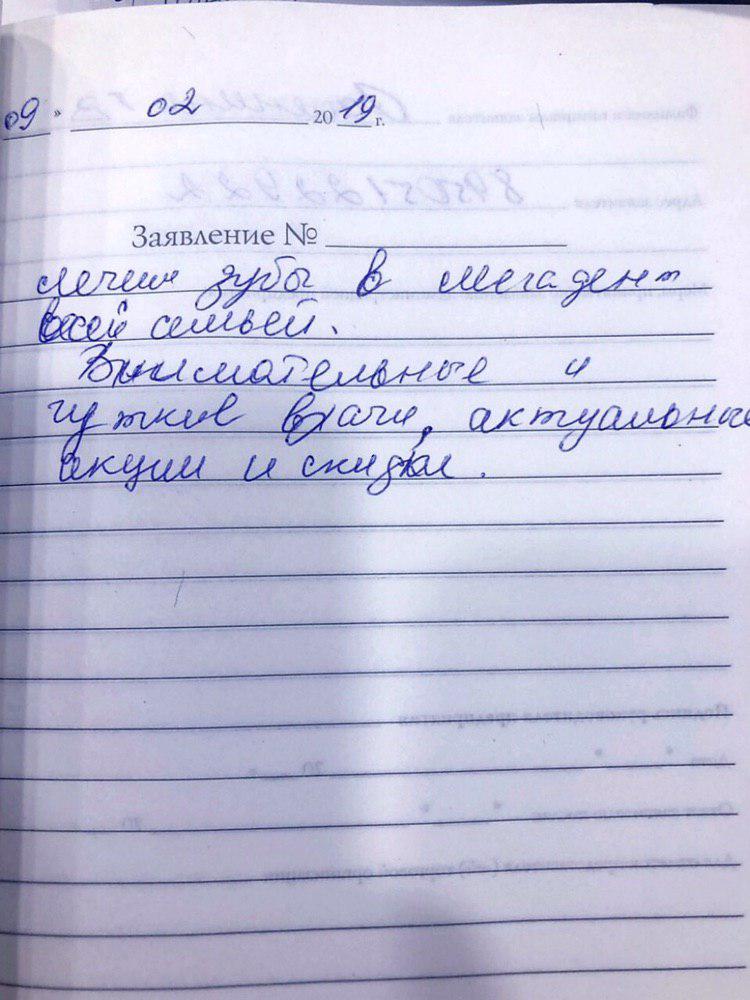 09 » 02 2019 г.
Заявление №
лечим зубы в мегадент
всей семьей.
Внимательные и
чуткие врачи, актуальные
акции и скидки.